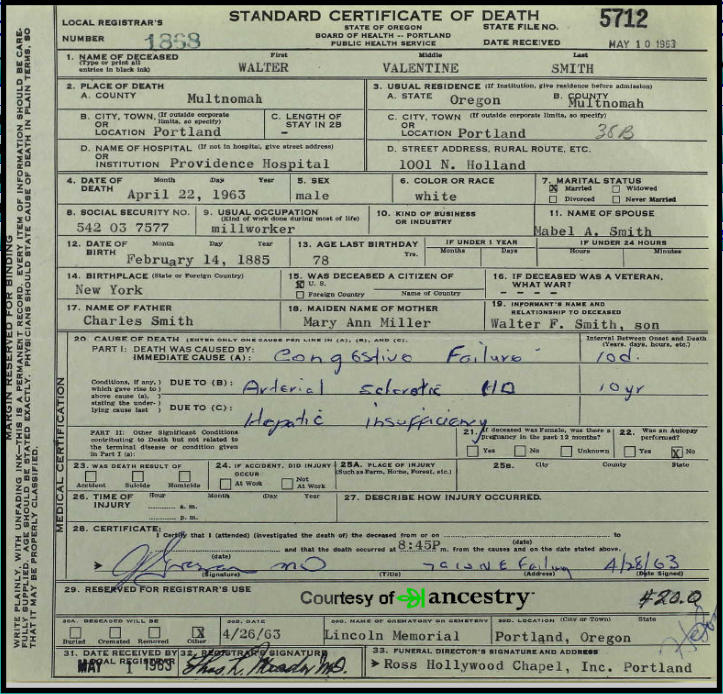 STANDARD CERTIFICATE OF DEATH
STATE OF OREGON
BOARD OF HEALTH -- PORTLAND
PUBLIC HEALTH SERVICE
LOCAL REGISTRAR'S
NUMBER 1868
STATE FILE NO. 5712
DATE RECEIVED MAY 10 1963
1. NAME OF DECEASED First Middle Last
(Type or print all entries in black ink) WALTER VALENTINE SMITH
2. PLACE OF DEATH
A. COUNTY Multnomah
3. USUAL RESIDENCE (If Institution, give residence before admission)
A. STATE Oregon B. COUNTY Multnomah
B. CITY, TOWN, (If outside corporate limits, so specify)
OR LOCATION Portland
C. LENGTH OF STAY IN 2B
-
C. CITY, TOWN, (If outside corporate limits, so specify)
OR LOCATION Portland 38B
D. NAME OF HOSPITAL (If not in hospital, give street address)
OR INSTITUTION Providence Hospital
D. STREET ADDRESS, RURAL ROUTE, ETC.
1001 N. Holland
4. DATE OF DEATH Month Day Year
April 22, 1963
5. SEX
male
6. COLOR OR RACE
white
7. MARITAL STATUS
X Married Widowed
Divorced Never Married
8. SOCIAL SECURITY NO.
542 03 7577
9. USUAL OCCUPATION
(Kind of work done during most of life)
millworker
10. KIND OF BUSINESS OR INDUSTRY
11. NAME OF SPOUSE
Mabel A. Smith
12. DATE OF BIRTH Month Day Year
February 14, 1885
13. AGE LAST BIRTHDAY
78 Yrs.
IF UNDER 1 YEAR
Months Days
IF UNDER 24 HOURS
Hours Minutes
14. BIRTHPLACE (State or Foreign Country)
New York
15. WAS DECEASED A CITIZEN OF
X U. S.
Foreign Country Name of Country
16. IF DECEASED WAS A VETERAN, WHAT WAR?
- - - -
17. NAME OF FATHER
Charles Smith
18. MAIDEN NAME OF MOTHER
Mary Ann Miller
19. INFORMANT'S NAME AND RELATIONSHIP TO DECEASED
Walter F. Smith, son
20. CAUSE OF DEATH (ENTER ONLY ONE CAUSE PER LINE IN (A), (B), AND (C).
Interval Between Onset and Death
(Years, days, hours, etc.)
PART I: DEATH WAS CAUSED BY:
IMMEDIATE CAUSE (A): Congestive Failure 10d.
Conditions, if any, which gave rise to above cause (a), stating the underlying cause last
DUE TO (B): Arterial sclerotic HD 10yr
DUE TO (C): Hepatic insufficiency
PART II: Other Significant Conditions contributing to Death but not related to the terminal disease or condition given in Part I (a):
21. If deceased was Female, was there a pregnancy in the past 12 months?
Yes No Unknown
22. Was an Autopsy performed?
Yes X No
23. WAS DEATH RESULT OF
Accident Suicide Homicide
24. IF ACCIDENT, DID INJURY OCCUR
At Work Not At Work
25A. PLACE OF INJURY
(Such as Farm, Home, Forest, etc.)
25B. City County State
26. TIME OF INJURY Hour Month Day Year
a. m.
p. m.
27. DESCRIBE HOW INJURY OCCURRED.
28. CERTIFICATE:
I Certify that I (attended) (investigated the death of) the deceased from or on (date) to
(date) and that death occurred at 8:45P m. from the causes and on the date stated above.
MD 4/28/63
(Signature) (Title) (Address) (Date Signed)
29. RESERVED FOR REGISTRAR'S USE
Courtesy of ancestry
30A. DECEASED WILL BE
Buried Cremated Removed X Other
30B. DATE
4/26/63
30C. NAME OF CREMATORY OR CEMETERY
Lincoln Memorial
30D. LOCATION (City or Town) State
Portland, Oregon
31. DATE RECEIVED BY LOCAL REGISTRAR
MAY 1 1963
32. REGISTRAR'S SIGNATURE
33. FUNERAL DIRECTOR'S SIGNATURE AND ADDRESS
Ross Hollywood Chapel, Inc. Portland
MARGIN RESERVED FOR BINDING
WRITE PLAINLY, WITH UNFADING INK—THIS IS A PERMANENT RECORD. EVERY ITEM OF INFORMATION SHOULD BE CAREFULLY SUPPLIED. AGE SHOULD BE STATED EXACTLY. PHYSICIANS SHOULD STATE CAUSE OF DEATH IN PLAIN TERMS, SO THAT IT MAY BE PROPERLY CLASSIFIED.
MEDICAL CERTIFICATION